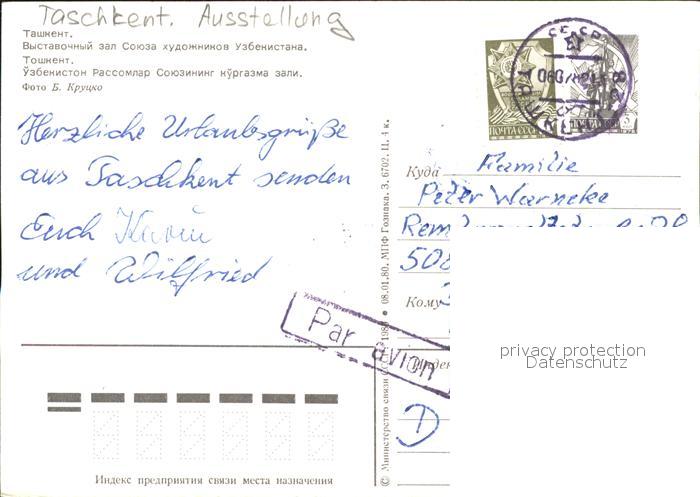 Taschkent. Ausstellung
Ташкент.
Выставочный зал Союза художников Узбекистана.
Тошкент.
Ўзбекистон Рассомлар Союзининг кўргазма зали.
Фото Б. Круцко
Herzliche Urlaubsgrüße
aus Taschkent senden
Euch Karin
und Wilfried
Par avion
Индекс предприятия связи места назначения
© Министерство связи СССР 1980 ● 08.01.80. МПФ Гознака. З. 6702. Ц. 4 к.
ПОЧТА СССР
ПОЧТА
Куда Familie
Peter Warneke
508
Кому
Инде
D
privacy protection
Datenschutz